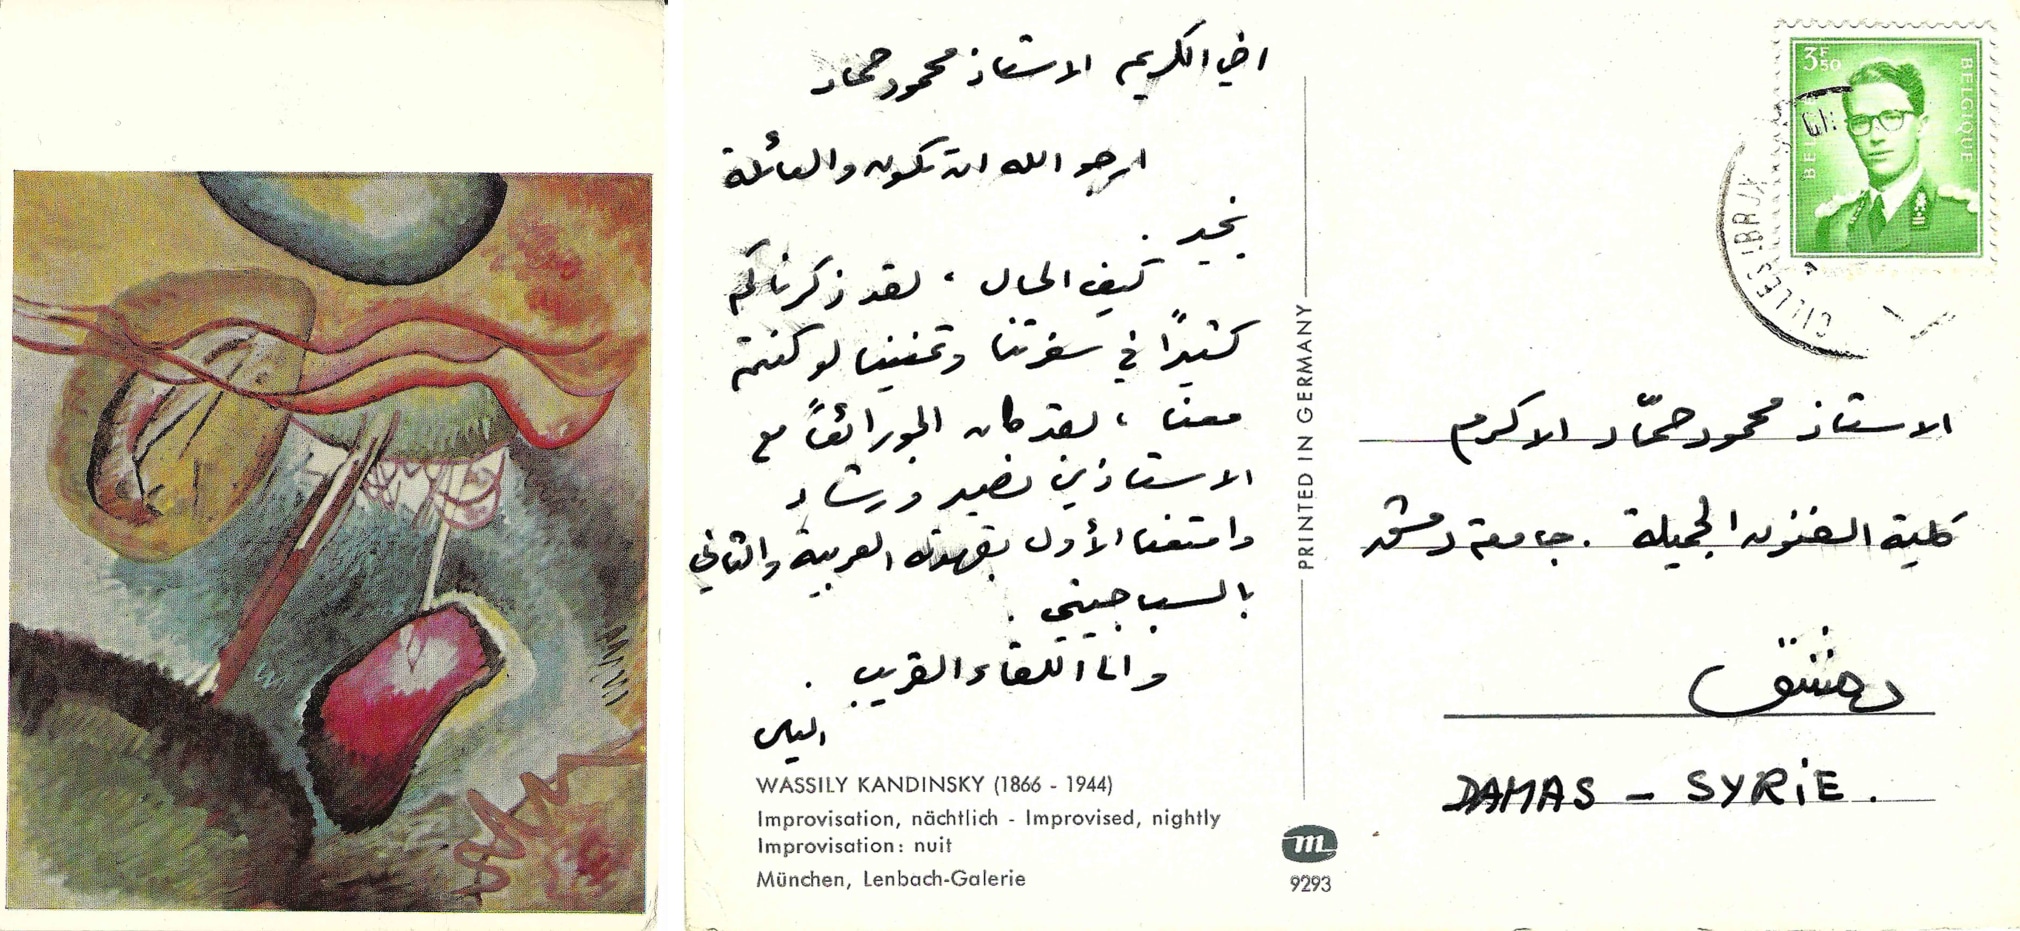 اخي الكريم الاستاذ محمود حماد
ارجو الله ان تكون والعائلة
بخير .
كيف الحال ، لقد ذكرناكم
كثيرًا في سفرتنا وتمنينا لو كنتم
معنا ، لقد كان الجو رائعًا مع
الاستاذين نصير ورشاد
وامتعنا الأول بقهوته العربية والثاني
بالسباجيتي .
والى اللقاء القريب .
الياس
WASSILY KANDINSKY (1866 - 1944)
Improvisation, nächtlich - Improvised, nightly
Improvisation: nuit
München, Lenbach-Galerie
PRINTED IN GERMANY
m
9293
3F50
BELGIQUE
الاستاذ محمود حمّاد الاكرم
كلية الفنون الجميلة . جامعة دمشق
دمشق
DAMAS - SYRIE .